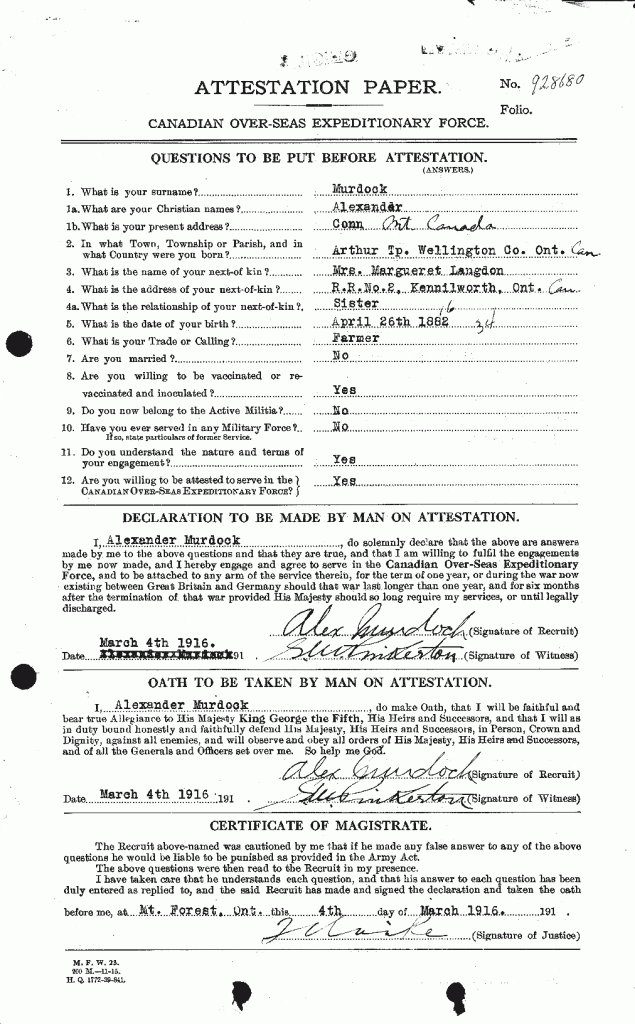 ATTESTATION PAPER.
No. 928680
Folio.
CANADIAN OVER-SEAS EXPEDITIONARY FORCE.
QUESTIONS TO BE PUT BEFORE ATTESTATION.
(ANSWERS.)
1. What is your surname? Murdock
1a. What are your Christian names? Alexander
1b. What is your present address? Conn Ont Canada
2. In what Town, Township or Parish, and in
what Country were you born? Arthur Tp. Wellington Co. Ont. Can
3. What is the name of your next-of kin? Mrs. Margueret Langdon
4. What is the address of your next-of-kin? R.R.No.2, Kennilworth, Ont. Can
4a. What is the relationship of your next-of-kin? Sister
5. What is the date of your birth? April 26th 1882
6. What is your Trade or Calling? Farmer
7. Are you married? No
8. Are you willing to be vaccinated or re-
vaccinated and inoculated? Yes
9. Do you now belong to the Active Militia? No
10. Have you ever served in any Military Force? No
If so, state particulars of former Service.
11. Do you understand the nature and terms of
your engagement? Yes
12. Are you willing to be attested to serve in the
CANADIAN OVER-SEAS EXPEDITIONARY FORCE? Yes
DECLARATION TO BE MADE BY MAN ON ATTESTATION.
I, Alexender Murdock, do solemnly declare that the above are answers
made by me to the above questions and that they are true, and that I am willing to fulfil the engagements
by me now made, and I hereby engage and agree to serve in the Canadian Over-Seas Expeditionary
Force, and to be attached to any arm of the service therein, for the term of one year, or during the war now
existing between Great Britain and Germany should that war last longer than one year, and for six months
after the termination of that war provided His Majesty should so long require my services, or until legally
discharged.
Alex Murdoch (Signature of Recruit)
March 4th 1916.
Date 191 . (Signature of Witness)
OATH TO BE TAKEN BY MAN ON ATTESTATION.
I, Alexander Murdock, do make Oath, that I will be faithful and
bear true Allegiance to His Majesty King George the Fifth, His Heirs and Successors, and that I will as
in duty bound honestly and faithfully defend His Majesty, His Heirs and Successors, in Person, Crown and
Dignity, against all enemies, and will observe and obey all orders of His Majesty, His Heirs and Successors,
and of all the Generals and Officers set over me. So help me God.
Alex Murdoch (Signature of Recruit)
Date March 4th 1916 191 . (Signature of Witness)
CERTIFICATE OF MAGISTRATE.
The Recruit above-named was cautioned by me that if he made any false answer to any of the above
questions he would be liable to be punished as provided in the Army Act.
The above questions were then read to the Recruit in my presence.
I have taken care that he understands each question, and that his answer to each question has been
duly entered as replied to, and the said Recruit has made and signed the declaration and taken the oath
before me, at Mt. Forest, Ont. this 4th day of March 1916. 191 .
(Signature of Justice)
M. F. W. 23.
200 M.—11-15.
H. Q. 1772-39-841.